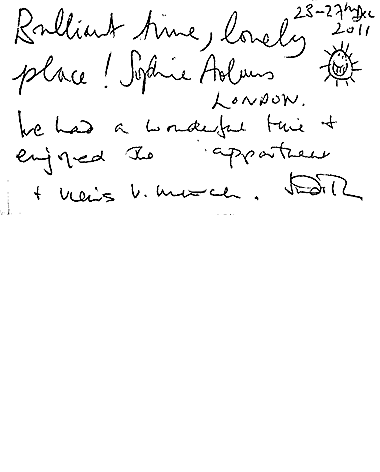 Brilliant time, lovely 23-27th Dec
2011
place! Sophie
LONDON.
We had a wonderful time +
enjoyed the appartment
+ views v. much.